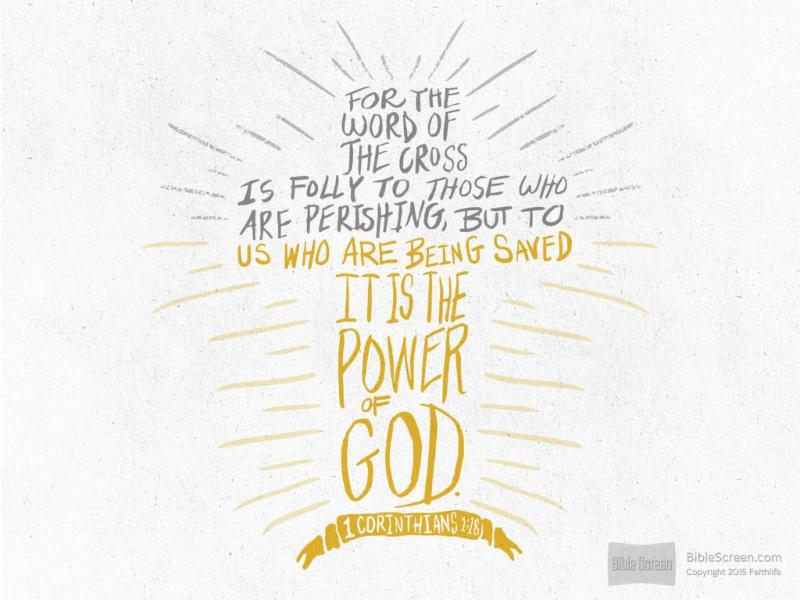 FOR THE
WORD OF
THE CROSS
IS FOLLY TO THOSE WHO
ARE PERISHING, BUT TO
US WHO ARE BEING SAVED
IT IS THE
POWER
OF
GOD.
1 CORINTHIANS 1:18
Bible Screen
BibleScreen.com
Copyright 2015 Faithlife